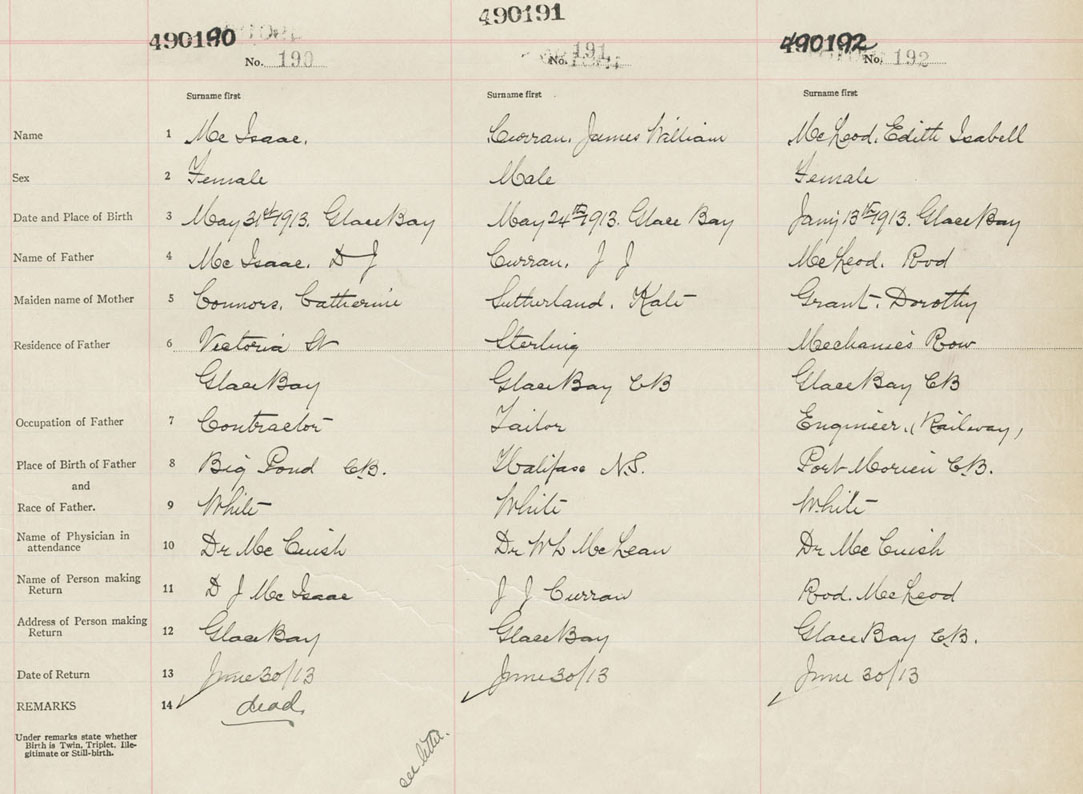 490190 490191 490192
No. 190 No. 191 No. 192
Surname first Surname first Surname first
Name 1 Mc Isaac. Curran. James William McLeod. Edith Isabell
Sex 2 Female Male Female
Date and Place of Birth 3 May 31st 1913. Glace Bay May 24th 1913. Glace Bay Jany 13th 1913. Glace Bay
Name of Father 4 Mc Isaac. D J Curran. J J McLeod. Rod
Maiden name of Mother 5 Connors. Catherine Sutherland. Kate Grant. Dorothy
Residence of Father 6 Victoria St Sterling Mechanics Row
Glace Bay Glace Bay CB Glace Bay CB
Occupation of Father 7 Contractor Tailor Engineer. (Railway)
Place of Birth of Father 8 Big Pond C.B. Halifax N.S. Port Morien C.B.
and
Race of Father. 9 White White White
Name of Physician in attendance 10 Dr Mc Cuish Dr W L McLean Dr Mc Cuish
Name of Person making Return 11 D J Mc Isaac J J Curran Rod. McLeod
Address of Person making Return 12 Glace Bay Glace Bay Glace Bay C.B.
Date of Return 13 June 30/13 June 30/13 June 30/13
REMARKS 14 dead.
Under remarks state whether
Birth is Twin, Triplet, Ille-
gitimate or Still-birth.
see letter.